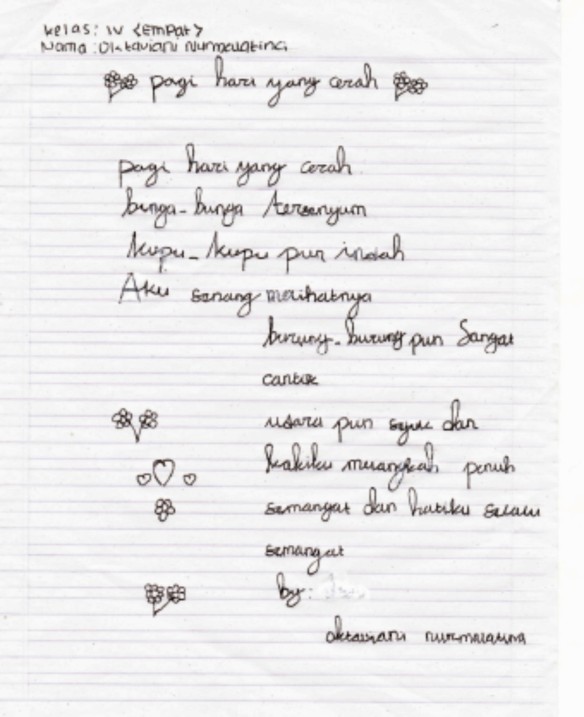 kelas: IV <Empat>
Nama: Oktaviani Nurmalatina
pagi hari yang cerah
pagi hari yang cerah.
bunga-bunga tersenyum
kupu-kupu pun indah
Aku senang melihatnya
burung-burung pun Sangat
cantik
udara pun sejuk dan
kakiku melangkah penuh
semangat dan hatiku selalu
semangat
by:
oktaviani nurmalatina